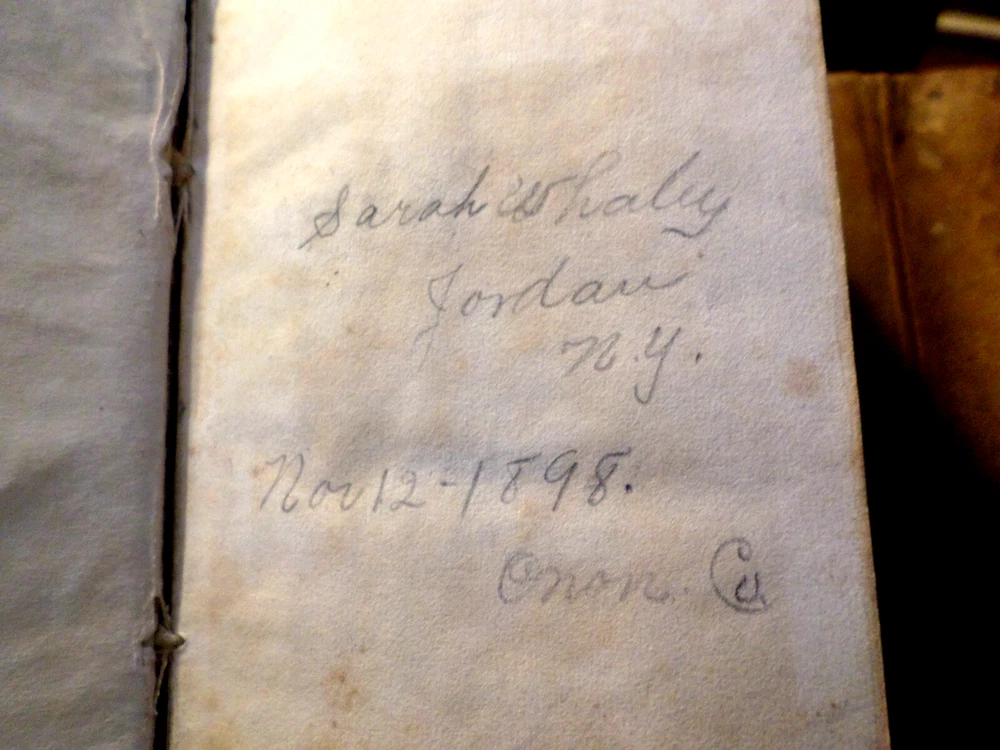 Sarah Whaley
Jordan
N.Y.
Nov 12-1898.
Onon. Co